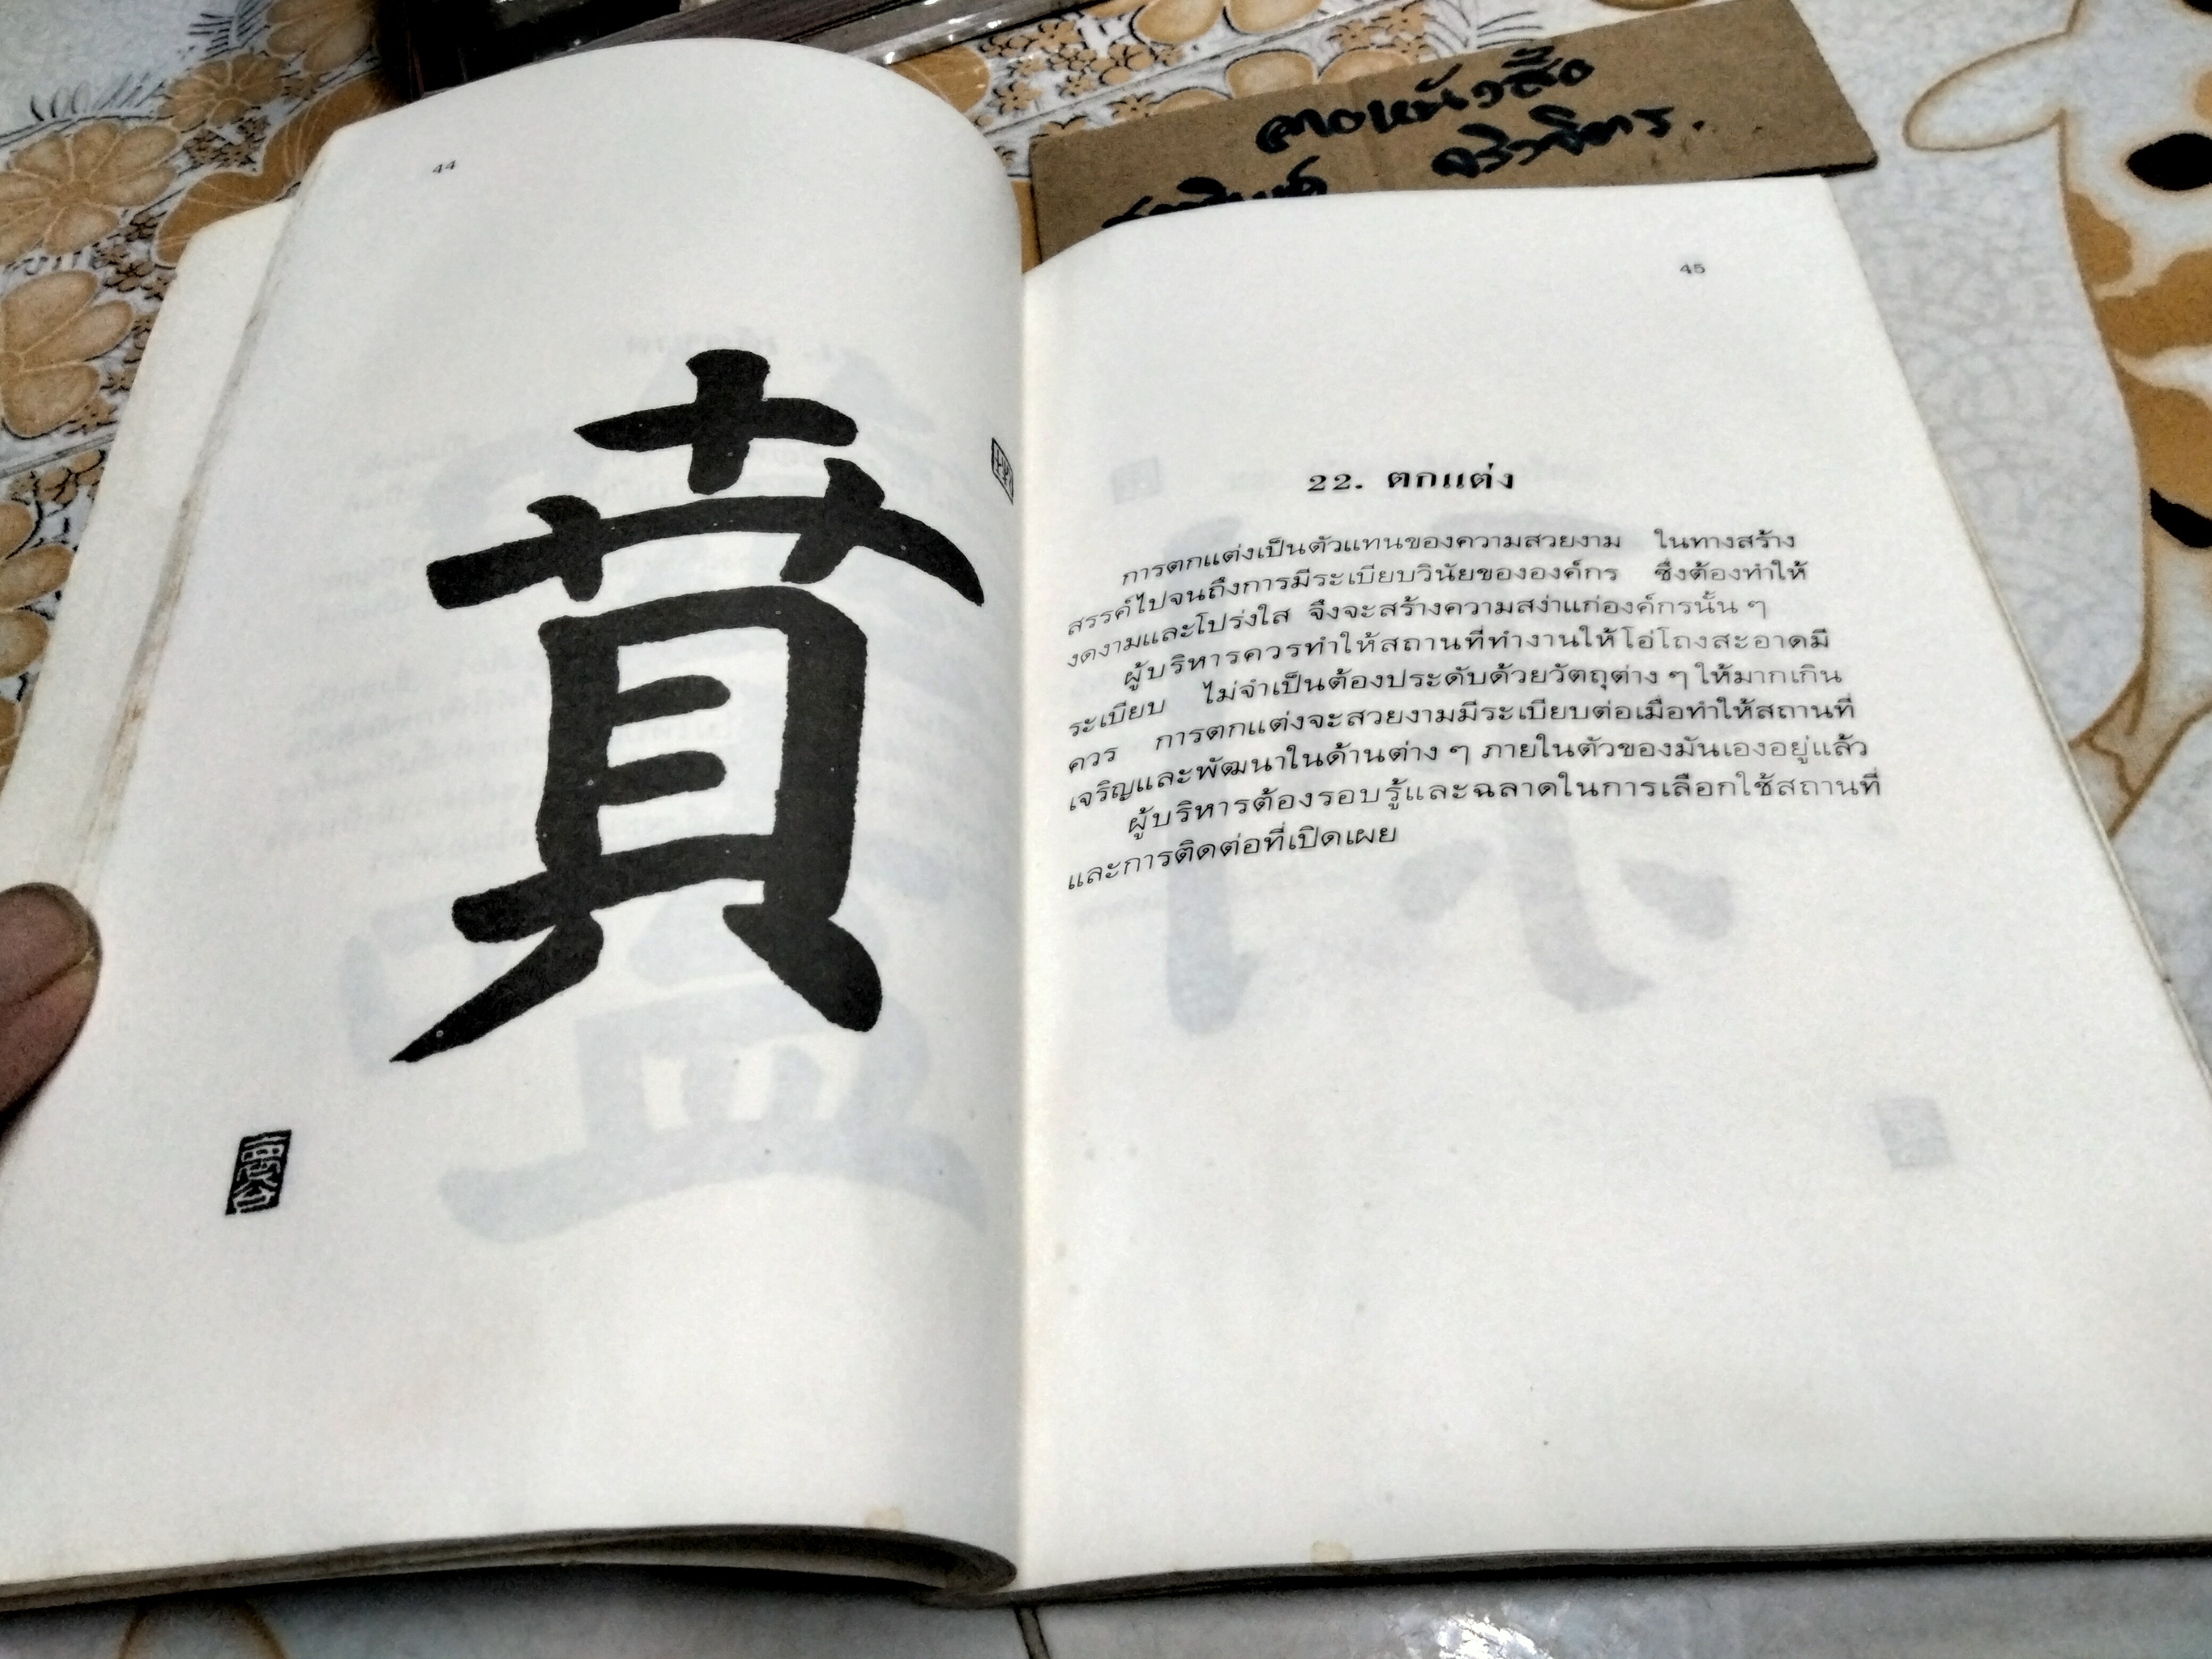 ลายหนังสือ
44
賁
45
22. ตกแต่ง
การตกแต่งเป็นตัวแทนของความสวยงาม ในทางสร้าง
สรรค์ไปจนถึงการมีระเบียบวินัยขององค์กร ซึ่งต้องทำให้
งดงามและโปร่งใส จึงจะสร้างความสง่าแก่องค์กรนั้น ๆ
ผู้บริหารควรทำให้สถานที่ทำงานให้โอ่โถงสะอาดมี
ระเบียบ ไม่จำเป็นต้องประดับด้วยวัตถุต่าง ๆ ให้มากเกิน
ควร การตกแต่งจะสวยงามมีระเบียบต่อเมื่อทำให้สถานที่
เจริญและพัฒนาในด้านต่าง ๆ ภายในตัวของมันเองอยู่แล้ว
ผู้บริหารต้องรอบรู้และฉลาดในการเลือกใช้สถานที่
และการติดต่อที่เปิดเผย